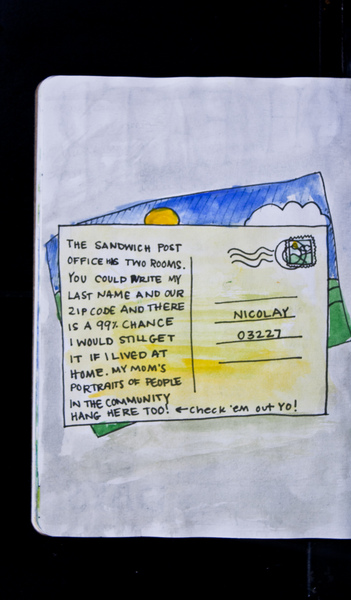 THE SANDWICH POST
OFFICE HAS TWO ROOMS.
YOU COULD WRITE MY
LAST NAME AND OUR
ZIP CODE AND THERE
IS A 99% CHANCE
I WOULD STILL GET
IT IF I LIVED AT
HOME. MY MOM'S
PORTRAITS OF PEOPLE
IN THE COMMUNITY
HANG HERE TOO! ← Check 'em out YO!
NICOLAY
03227